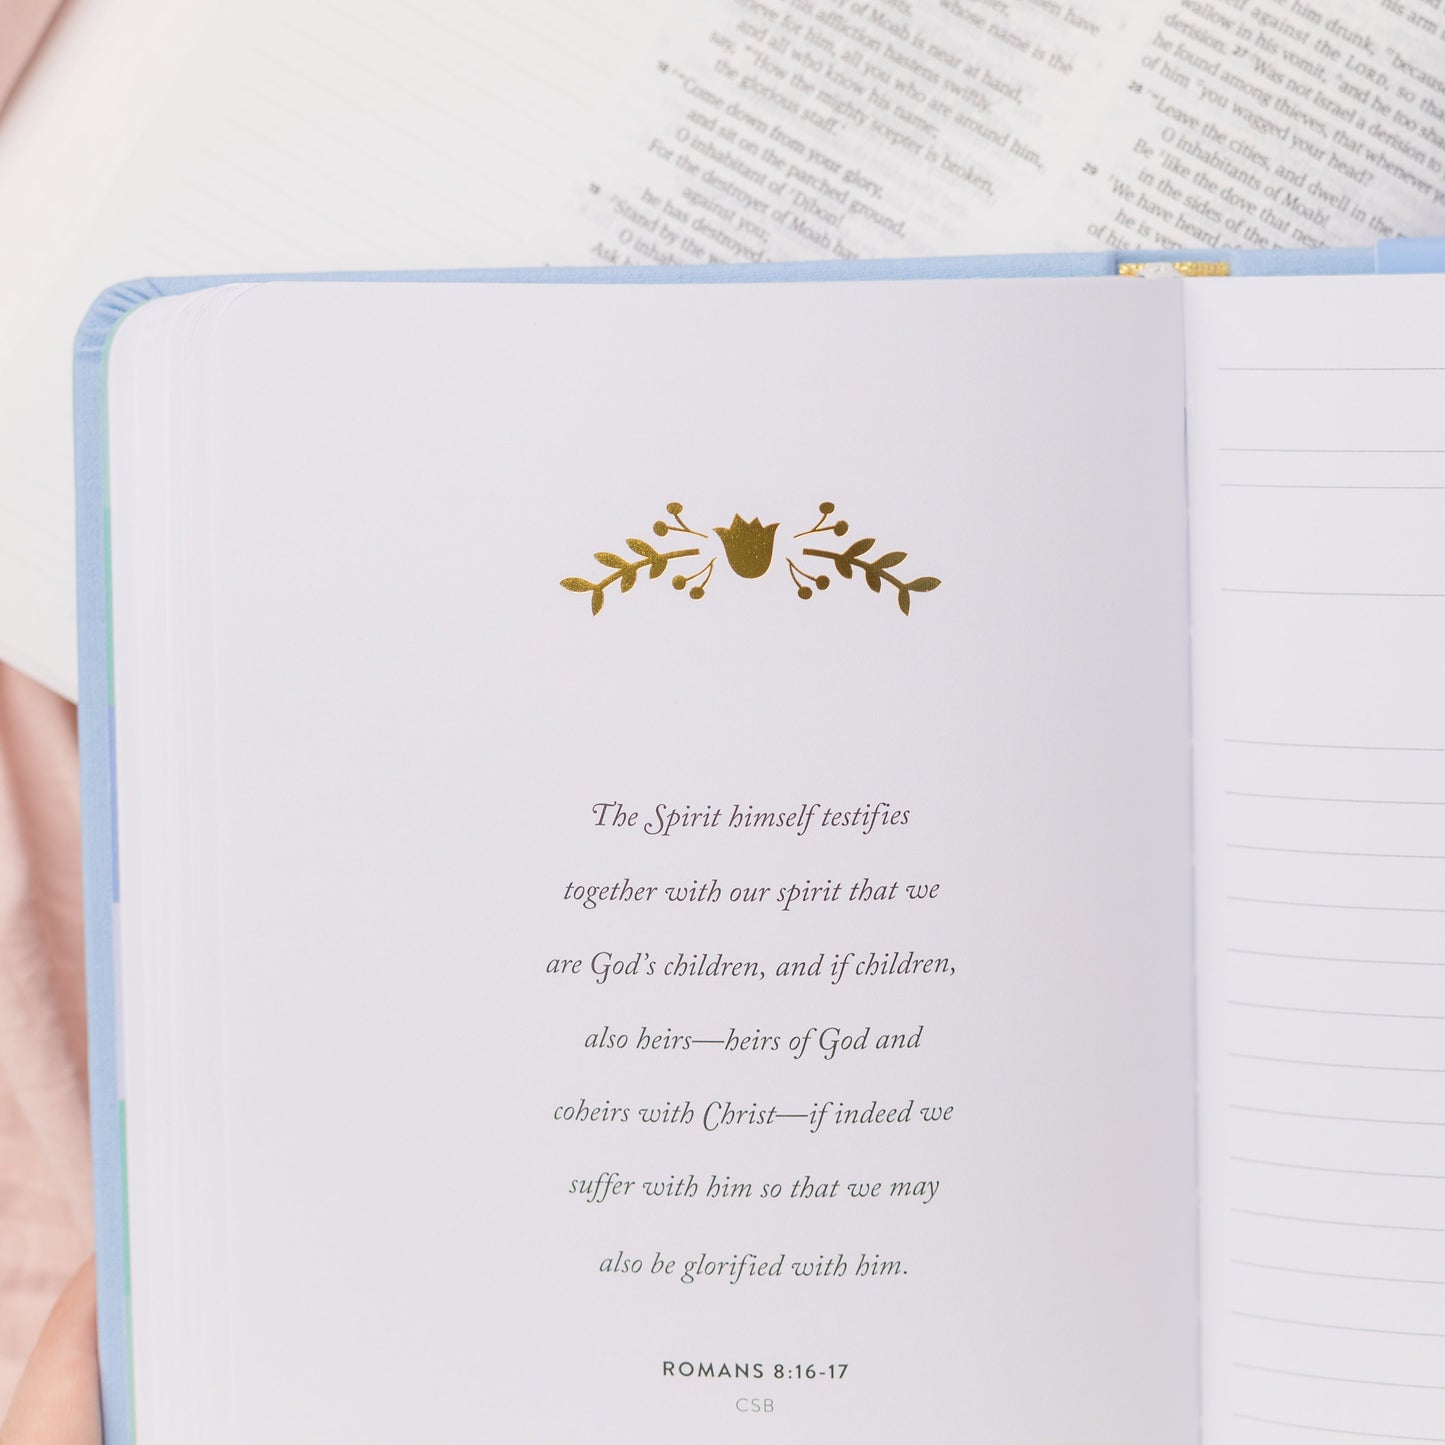 whose name is the
of Moab is near at hand,
his affliction hastens swiftly.
for him, all you who are around him,
and all who know his name;
say, "How the mighty scepter is broken,
the glorious staff."
18 "Come down from your glory,
and sit on the parched ground,
O inhabitant of Dibon!
For the destroyer of Moab has
against you;
he has destroyed
19 "Stand by the
O inhab
Ask
him drunk, because
against the LORD, so that
wallow in his vomit, and he too
derision. 27 Was not Israel a derision to
he found among thieves, that whenever
of him you wagged your head?
28 "Leave the cities, and dwell in the
O inhabitants of Moab!
Be like the dove that nests
in the sides of the
29 We have heard of
he is very
of his
The Spirit himself testifies
together with our spirit that we
are God's children, and if children,
also heirs—heirs of God and
coheirs with Christ—if indeed we
suffer with him so that we may
also be glorified with him.
ROMANS 8:16-17
CSB